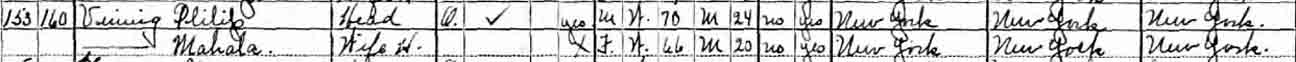 153 160 Vining Philip Head O. ✓ yes M W. 70 M 24 no yes New York New York New York.
—— Mahala. Wife H. X F. W. 66 M 20 no yes New York New York New York.